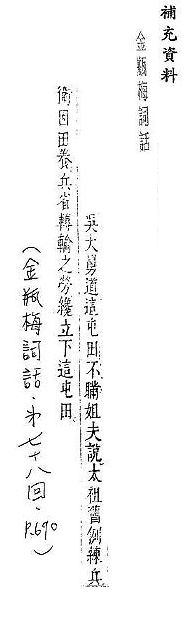 補充資料
金瓶梅詞話
吳大舅道這屯田不瞞姐夫說太祖舊例練兵
衛因田養兵省轉輸之勞纔立下這屯田
(金瓶梅詞話·第七十八回·P.690)